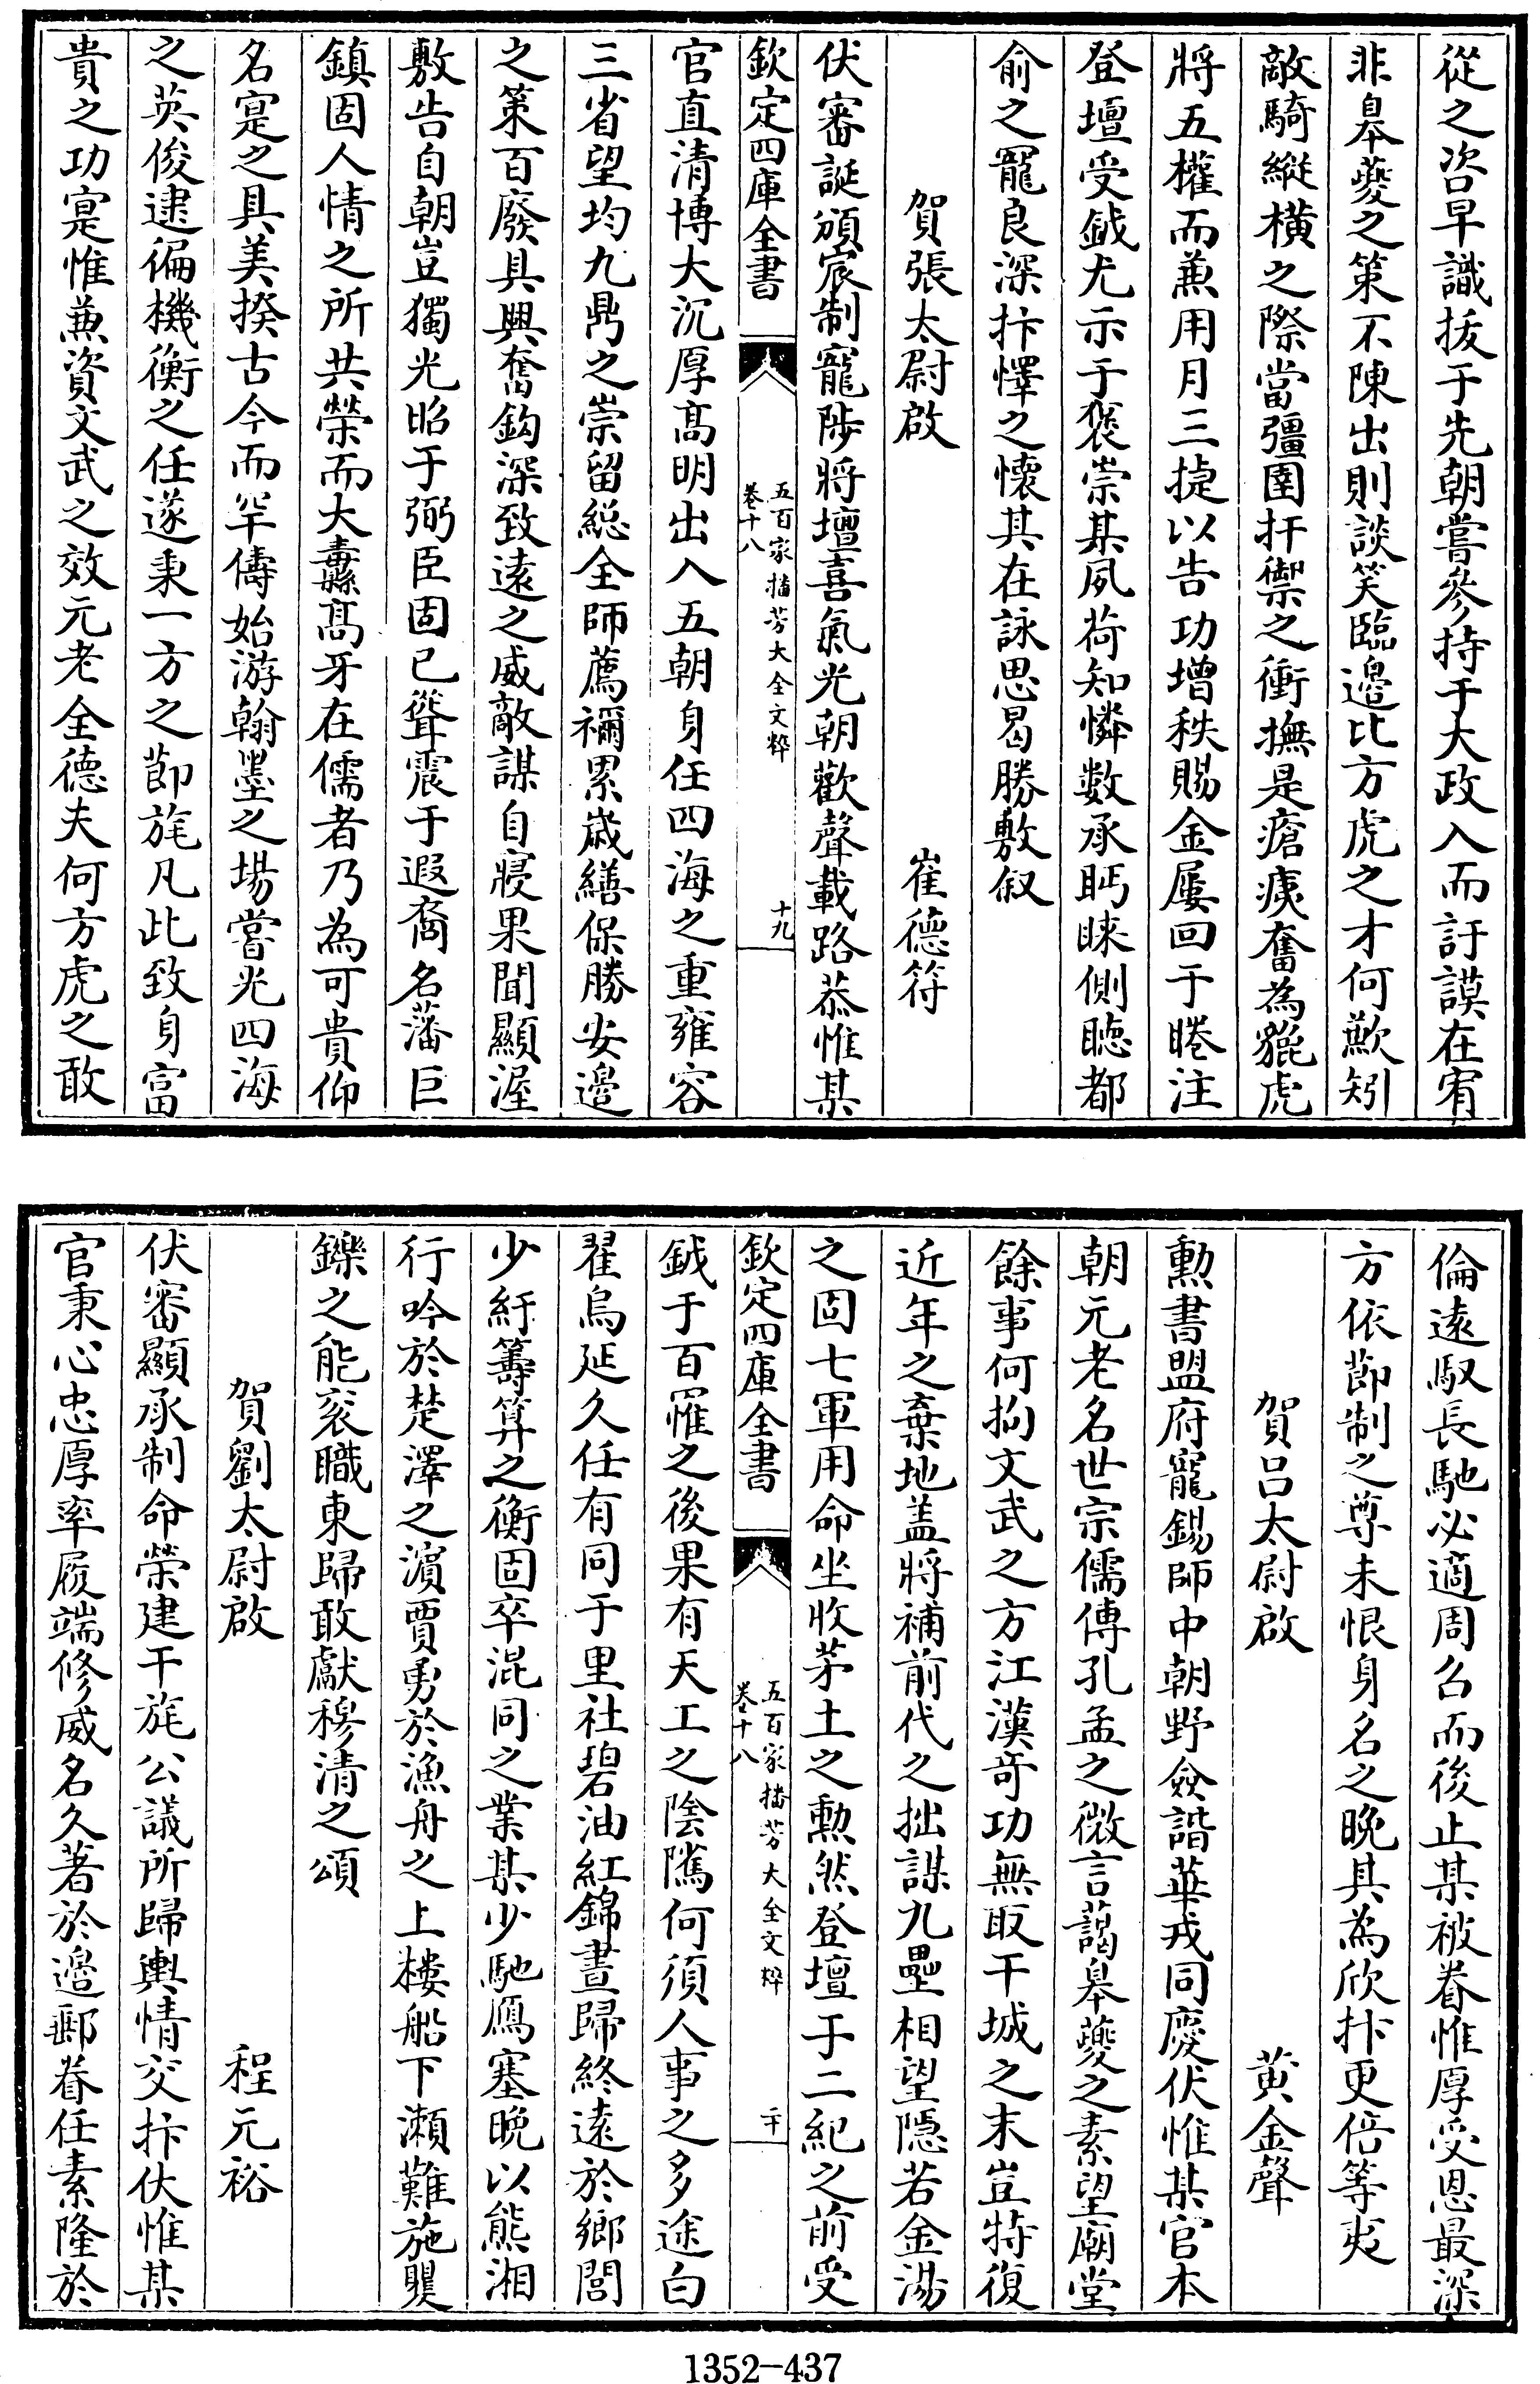 從之咨早識拔于先朝嘗參持于大政入而訏謨在宥
非臯夔之策不陳出則談笑臨邉比方虎之才何歉矧
敵騎縱横之際當彊圉扞禦之衝撫是瘡痍奮為貔虎
將五權而兼用月三捷以告功增秩賜金屢回于睠注
登壇受鉞尤示于褒崇某夙荷知憐数承眄睞側聴都
俞之寵良深抃懌之懐其在詠思曷勝敷叙
賀張太尉啟　崔德符
伏審誕頒宸制寵陟將壇喜氣光朝歡聲載路恭惟某
欽定四庫全書
五百家播芳大全文粹
卷十八
十九
官直清博大沉厚髙明出入五朝身任四海之重雍容
三省望均九鼎之崇留緫全師薦禰累嵗繕保勝安邉
之策百廢具興奮鈎深致逺之威敵謀自寢果聞顯渥
敷告自朝豈獨光昭于弼臣固已聳震于遐裔名藩巨
鎮固人情之所共榮而大纛髙牙在儒者乃為可貴仰
名寔之具美揆古今而罕儔始游翰墨之場嘗光四海
之英俊逮徧機衡之任遂秉一方之節旄凡此致身富
貴之功寔惟兼資文武之效元老全德夫何方虎之敢
倫逺馭長馳必適周召而後止某被眷惟厚受恩最深
方依節制之尊未恨身名之晚其為欣抃更倍等夷
賀吕太尉啟　黄金聲
勲書盟府寵錫師中朝野僉諧華戎同慶伏惟某官本
朝元老名世宗儒傳孔孟之微言藹臯夔之素望廟堂
餘事何拘文武之方江漢竒功無取干城之末豈特復
近年之棄地盖將補前代之拙謀九壘相望隱若金湯
之固七軍用命坐收茅土之勲然登壇于二紀之前受
欽定四庫全書
五百家播芳大全文粹
卷十八
二十
鉞于百罹之後果有天工之陰隲何須人事之多途白
翟烏延久任有同于里社碧油紅錦晝歸終逺於鄉閭
少紆籌筭之衡固卒混同之業某少馳鴈塞晚以熊湘
行吟於楚澤之濵賈勇於漁舟之上樓船下瀬難施矍
鑠之能衮職東歸敢獻穆清之頌
賀劉太尉啟　程元裕
伏審顯承制命榮建干旄公議所歸輿情交抃伏惟某
官秉心忠厚率履端修威名久著於邉鄙眷任素隆於
1352-437